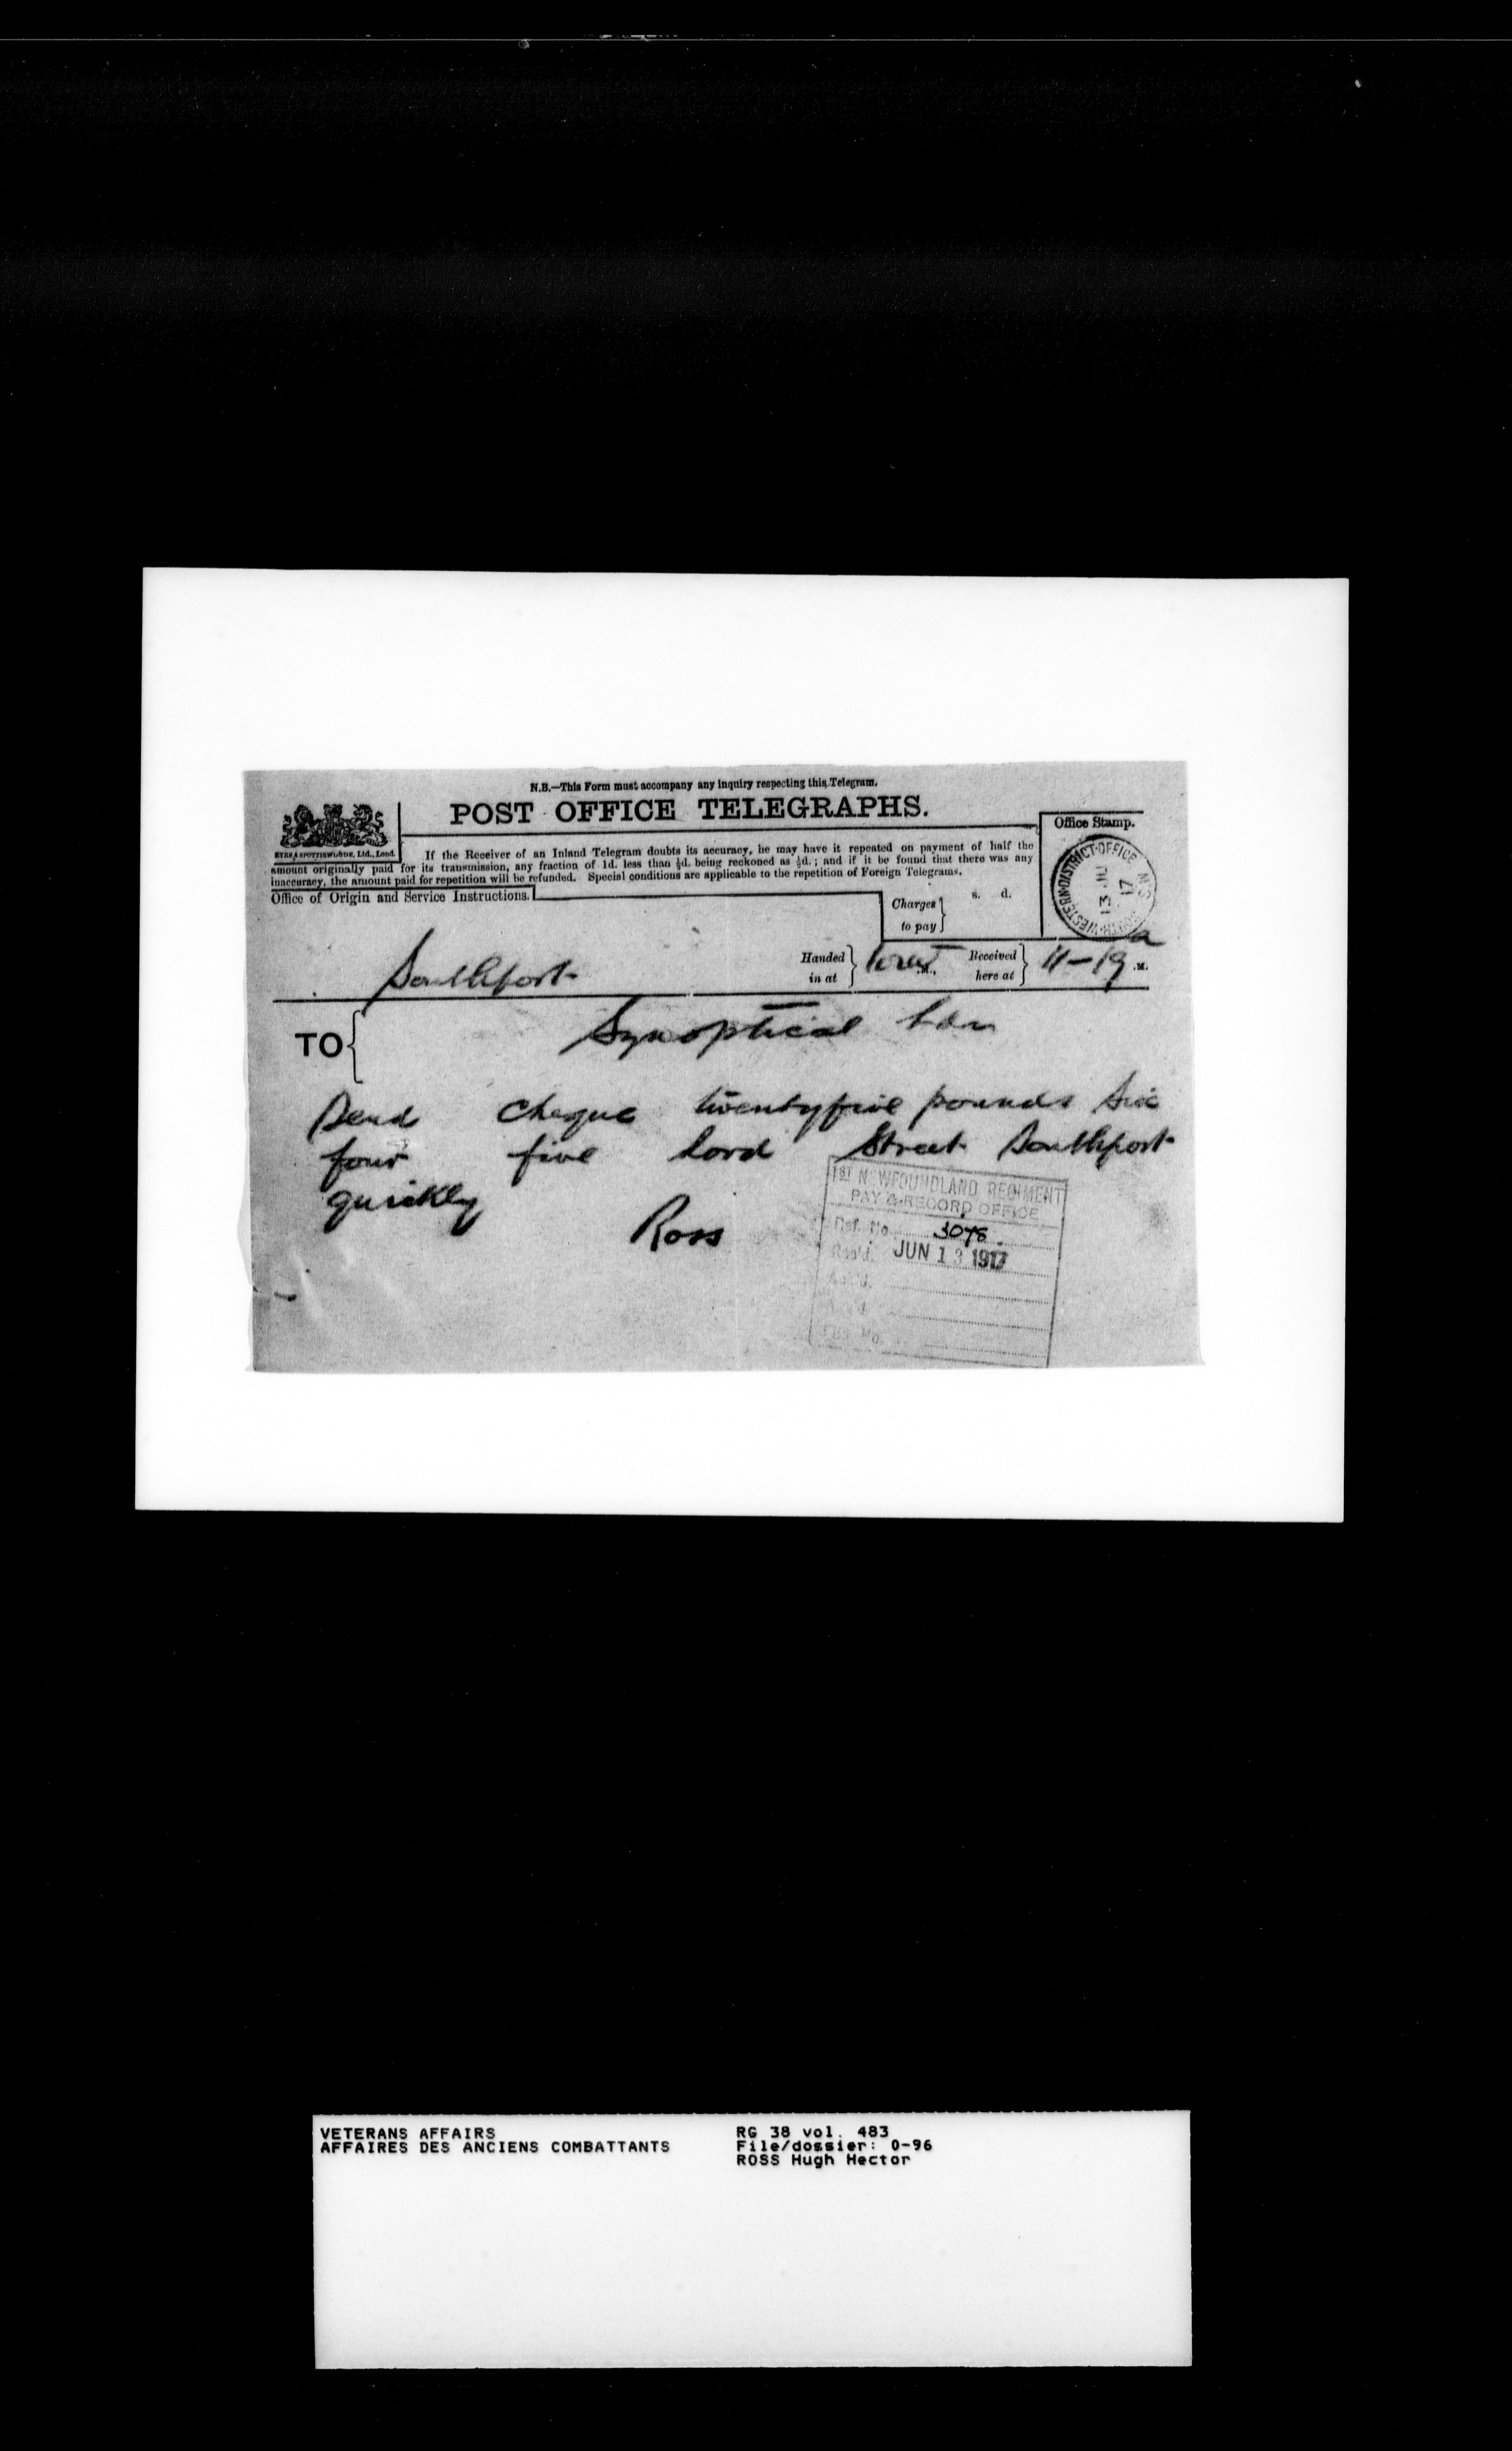 N.B.—This Form must accompany any inquiry respecting this Telegram.
POST OFFICE TELEGRAPHS.
EYRE & SPOTTISWOODE, Ltd., Lond.
If the Receiver of an Inland Telegram doubts its accuracy, he may have it repeated on payment of half the
amount originally paid for its transmission, any fraction of 1d. less than ½d. being reckoned as ½d.; and if it be found that there was any
inaccuracy, the amount paid for repetition will be refunded. Special conditions are applicable to the repetition of Foreign Telegrams.
Office of Origin and Service Instructions.
Charges to pay
s. d.
Office Stamp.
NORTH-WESTERN-DISTRICT-OFFICE
13 JU
17
Southport
Handed in at
M.,
Received here at
11-19 a
.M.
TO
Synoptical Ldn
Send cheque twentyfive pounds six
four five Lord Street Southport
quickly
Ross
1ST NEWFOUNDLAND REGIMENT
PAY & RECORD OFFICE
Ref. No. 3078.
Rec'd. JUN 13 1917
Ack'd.
File No.
VETERANS AFFAIRS
AFFAIRES DES ANCIENS COMBATTANTS
RG 38 vol. 483
File/dossier: O-96
ROSS Hugh Hector